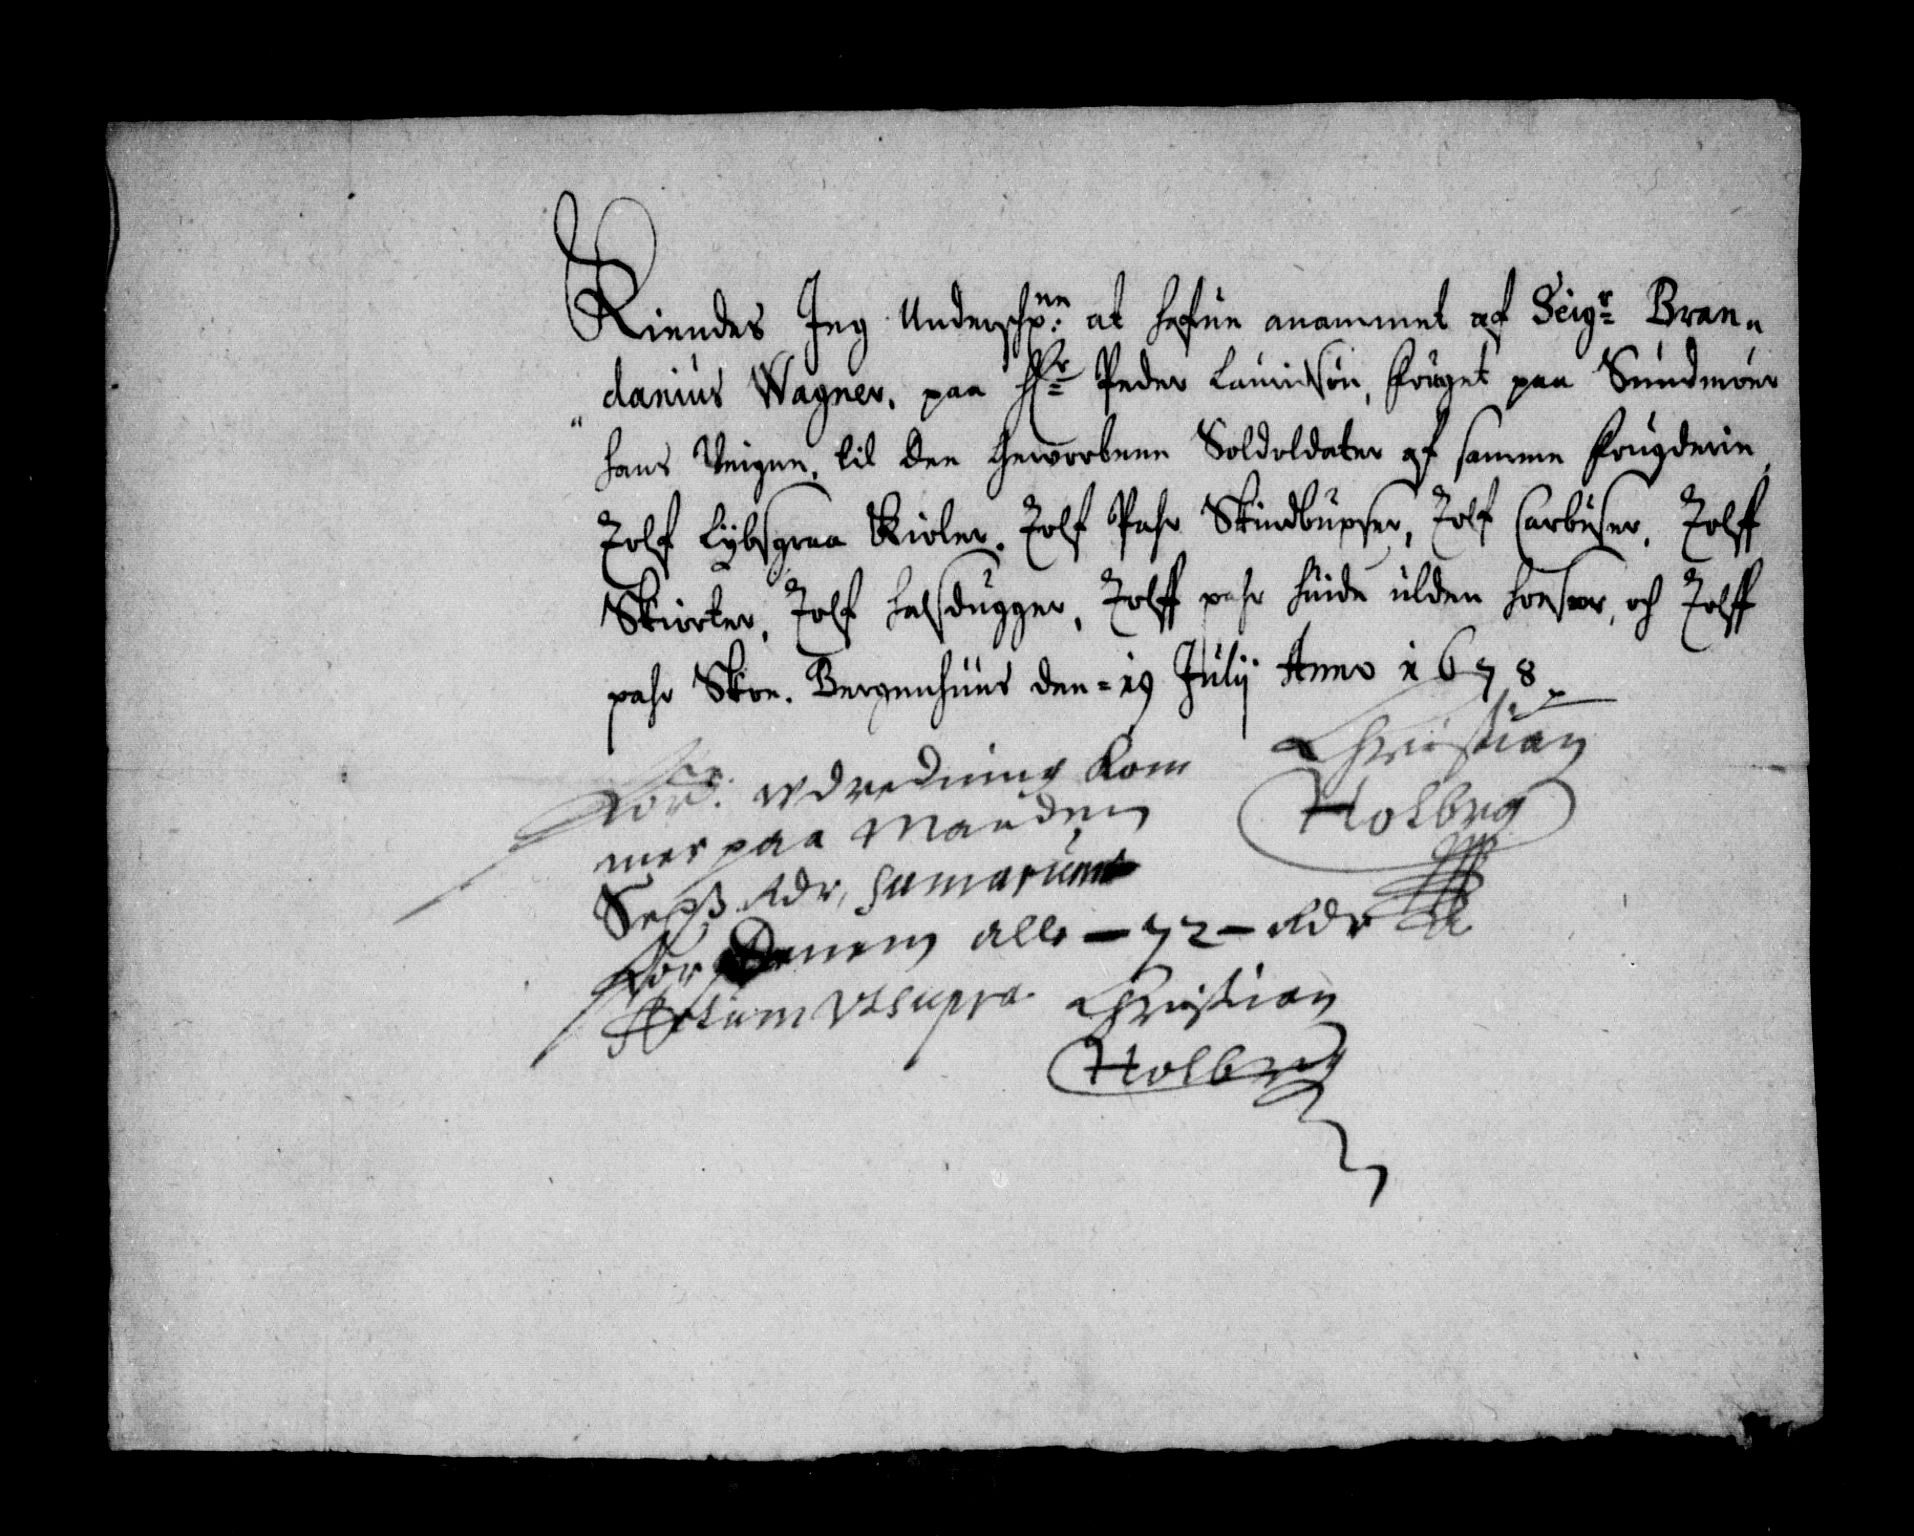 Kiendes Jeg Underschr:ne at hafue anammet af Seigr Bran„
„danius Wagner, paa Hr Peder Lauridsön, fouget paa Sundmöer
hans Veigne, til den Geworbene Soldoldater af samme fougderie,
Tolf Lybsgraa Kioler, Tolf Pahr Skindbuxser, Tolf Carbuser, Tolff
Skiorter, Tolf halsdugger, Tolff pahr huide ulden hoeser, och Tolff
pahr Skoe. Bergenhuus den = 19 Julij Anno 1678.
Christian
Holberg
For: udredning kom
mer paa Manden
Sex Rdr, sumarum
for dennem alle – 72 – Rdr
Actum Ut supra. Christian
Holberg